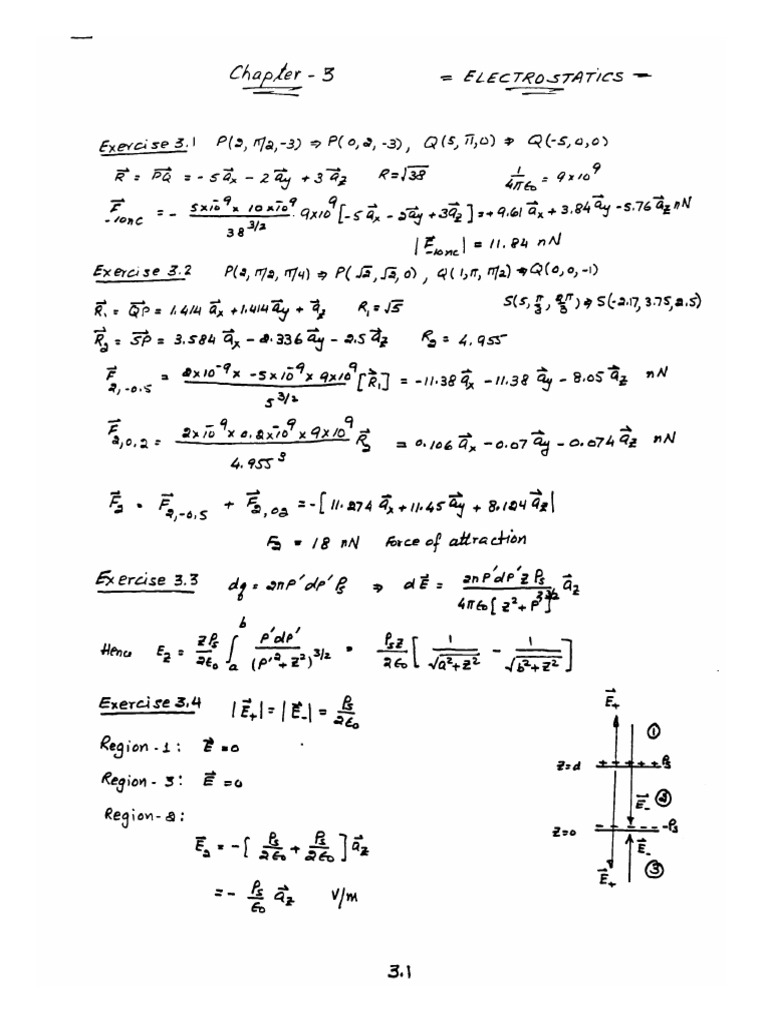 Chapter - 3 = ELECTROSTATICS -
Exercise 3.1 P(2, π/2, -3) ⇒ P(0, 2, -3), Q(5, π, 0) ⇒ Q(-5, 0, 0)
R⃗ = PQ⃗ = -5 a⃗x - 2 a⃗y + 3 a⃗z R = √38 1/4πε₀ = 9×10⁹
F⃗-10nc = - 5×10⁻⁹ × 10×10⁻⁹ / 38^3/2 · 9×10⁹ [-5 a⃗x - 2a⃗y + 3a⃗z] = +9.61 a⃗x + 3.84 a⃗y - 5.76 a⃗z nN
|F⃗-10nc| = 11.84 nN
Exercise 3.2 P(2, π/2, π/4) ⇒ P(√2, √2, 0), Q(1, π, π/2) ⇒ Q(0, 0, -1)
R⃗₁ = QP⃗ = 1.414 a⃗x + 1.414 a⃗y + a⃗z R₁ = √5 S(5, π/3, 2π/3) ⇒ S(-2.17, 3.75, 2.5)
R⃗₂ = SP⃗ = 3.584 a⃗x - 2.336 a⃗y - 2.5 a⃗z R₂ = 4.955
F⃗2,-0.5 = 2×10⁻⁹ × -5×10⁻⁹ × 9×10⁹ / 5^3/2 [R⃗₁] = -11.38 a⃗x - 11.38 a⃗y - 8.05 a⃗z nN
F⃗2,0.2 = 2×10⁻⁹ × 0.2×10⁻⁹ × 9×10⁹ / 4.955³ R⃗₂ = 0.106 a⃗x - 0.07 a⃗y - 0.074 a⃗z nN
F⃗₂ = F⃗2,-0.5 + F⃗2,02 = -[11.274 a⃗x + 11.45 a⃗y + 8.124 a⃗z|
F₂ = 18 nN Force of attraction
Exercise 3.3 dq = 2πρ'dρ'ρs ⇒ dE⃗ = 2πρ'dρ'z ρs / 4πε₀[z² + ρ²]^3/2 a⃗z
Hence Ez = zρs/2ε₀ ∫ₐᵇ ρ'dρ' / (ρ'² + z²)^3/2 = ρsz/2ε₀ [1/√a²+z² - 1/√b²+z²]
Exercise 3.4 |E⃗+| = |E⃗-| = ρs/2ε₀
Region - 1: E⃗ = 0
Region - 3: E⃗ = 0
Region - 2:
E⃗₂ = -[ρs/2ε₀ + ρs/2ε₀] a⃗z
= - ρs/ε₀ a⃗z V/m
E⃗+
①
z=d + + + + + ρs
E⃗- ②
z=0 - - - - - -ρs
E⃗-
E⃗+ ③
3.1